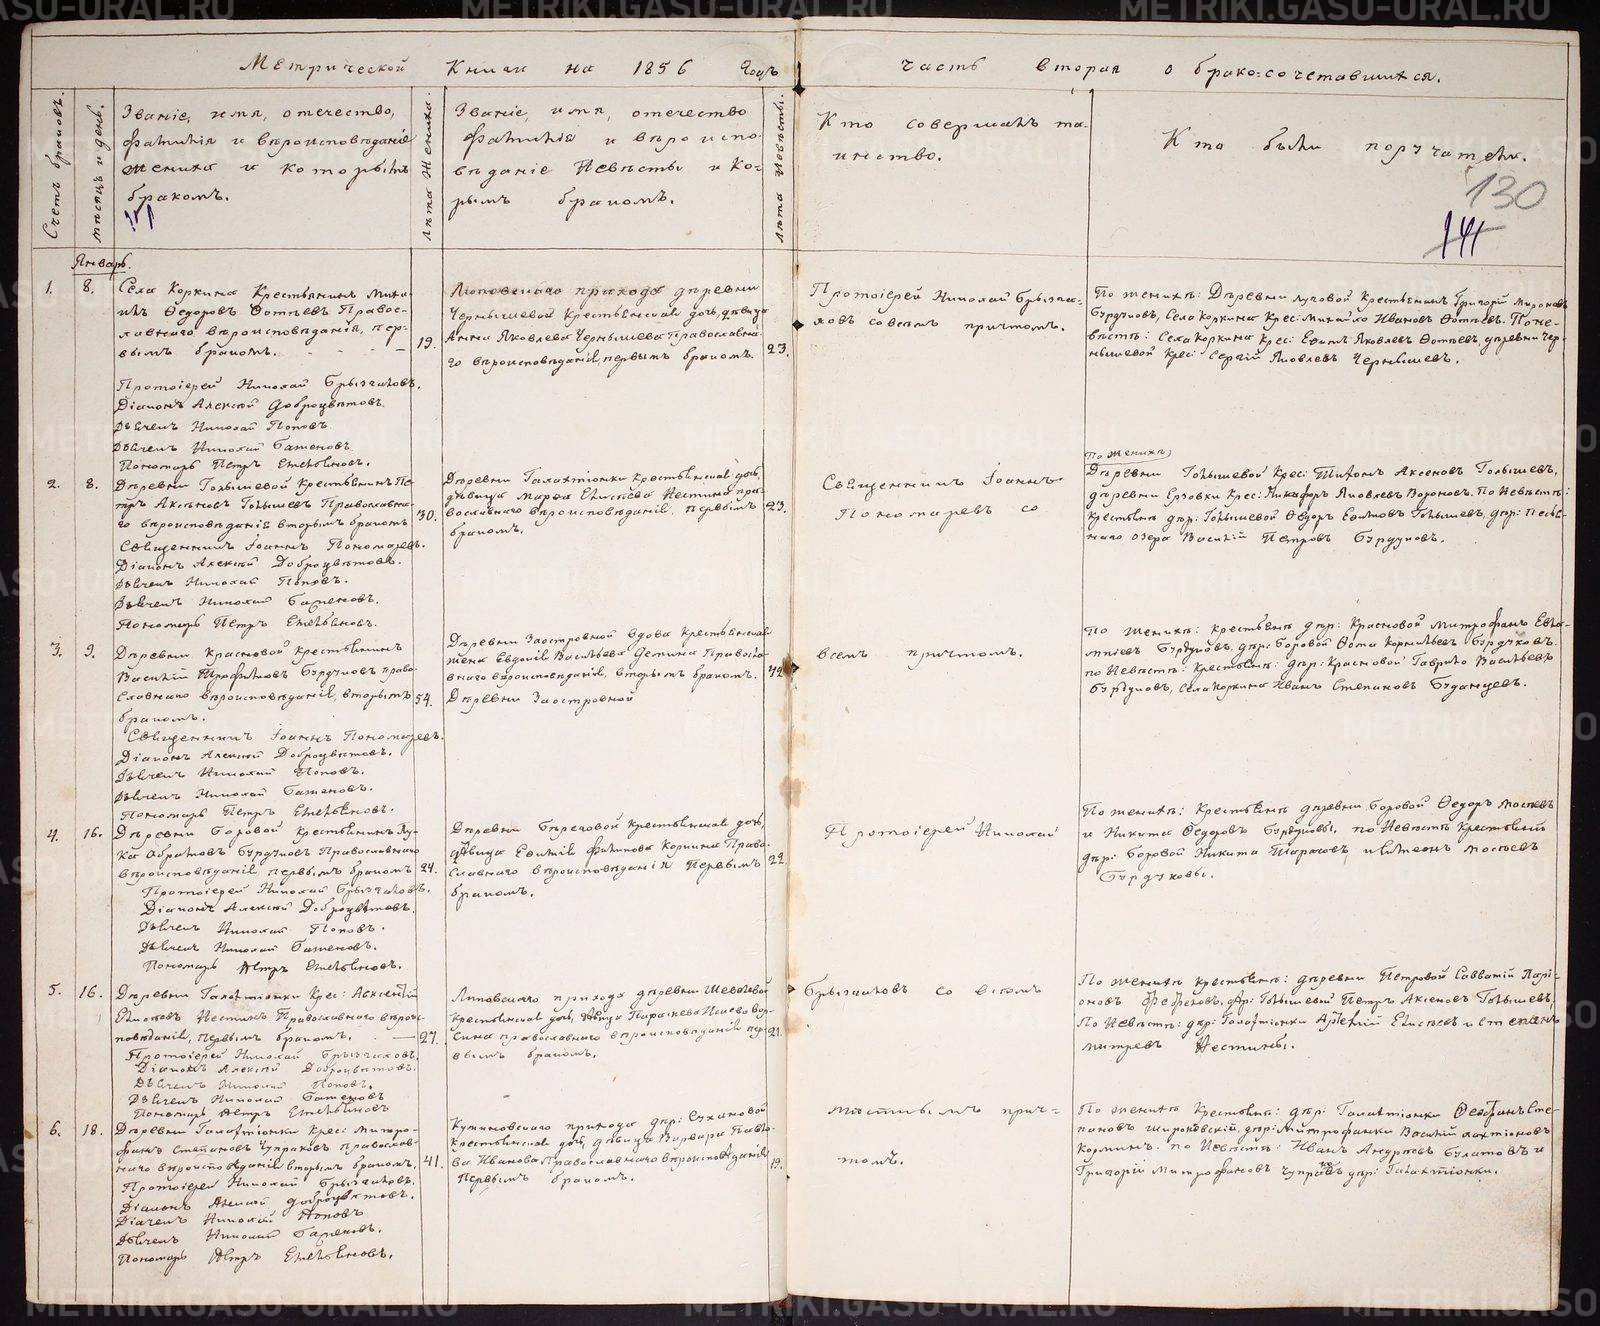 Метрической Книги на 1856 годъ
часть вторая о брако=сочетавшихся.
Счетъ браковъ.
мѣсяцъ и день.
Званіе, имя, отечество,
фамилія и вѣроисповѣданіе
жениха и которымъ
бракомъ.
лѣта Жениха.
Званіе, имя, отечество
фамилія и вѣроиспо-
вѣданіе Невѣсты и ко-
рымъ бракомъ.
лѣта Невѣсты.
Кто совершалъ та-
инство.
Кто были поручатели.
130
141
Январь.
1. 8. Села Коркина Крестьянинъ Миха-
илъ Ѳедоровъ Ѳотѣевъ Правос-
лавнаго вѣроисповѣданія, пер-
вымъ бракомъ. 19.
Протоіерей Николай Брызгаловъ.
Діаконъ Алексѣй Доброцвѣтовъ.
Дьячекъ Николай Поповъ.
Дьячекъ Николай Баженовъ.
Пономарь Петръ Емельяновъ.
Липовскаго прихода деревни
Чернышевой крестьянская дочь, дѣвица
Анна Яковлева Чернышева Православна-
го вѣроисповѣданія, первымъ бракомъ. 23.
Протоіерей Николай Брызга-
ловъ совсѣмъ причтомъ.
По женихѣ: Деревни Луговой Крестьянинъ Григорій Мироновъ
Бурдуковъ, Села Коркина Крес: Михайло Ивановъ Ѳотѣевъ. По не-
вѣстѣ: Села Коркина Крес: Ефимъ Яковлевъ Ѳотѣевъ, деревни Чер-
нышевой Крес: Сергій Яковлевъ Чернышевъ.
2. 8. Деревни Голышевой Крестьянинъ Пе-
тръ Аксеновъ Голышевъ Православна-
го вѣроисповѣданія вторымъ бракомъ 30.
Священникъ Іоаннъ Пономаревъ.
Діаконъ Алексѣй Доброцвѣтовъ.
Дьячекъ Николай Поповъ.
Дьячекъ Николай Баженовъ.
Пономарь Петръ Емельяновъ.
Деревни Галактіонки крестьянская дочь,
дѣвица Марѳа Елисѣева Нестина пра-
вославнаго вѣроисповѣданія, первымъ 23.
бракомъ.
Священникъ Іоаннъ
Пономаревъ со
По женихѣ,
Деревни Голышевой Крес: Тихонъ Аксеновъ Голышевъ,
деревни Ерзовки Крес: Никифоръ Яковлевъ Вороновъ. По Невѣстѣ:
крестьяне дер: Голышевой Ѳедоръ Ефимовъ Голышевъ, дер:
озера Василій Петровъ Бурдуковъ.
3. 9. Деревни Красновой Крестьянинъ
Василій Трофимовъ Бурдуковъ право-
славнаго вѣроисповѣданія, вторымъ 54.
бракомъ.
Священникъ Іоаннъ Пономаревъ.
Діаконъ Алексѣй Доброцвѣтовъ.
Дьячекъ Николай Поповъ.
Дьячекъ Николай Баженовъ.
Пономарь Петръ Емельяновъ.
Деревни Заостровной вдова Крестьянская
жена Евдокія Васильева Демина Правосла-
внаго вѣроисповѣданія, вторымъ бракомъ. 42
Деревни Заостровной
всемъ причтомъ.
По женихѣ: крестьяне дер: Красновой Митрофанъ Евла-
мпіевъ Бурдуковъ, дер: Боровой Ѳома Корнильевъ Бурдуковъ.
по Невѣстѣ: Крестьяне: дер: Красновой Гаврило Васильевъ
Бурдуковъ, Села Коркина Иванъ Степановъ Буданцевъ.
4. 16. Деревни Боровой крестьянинъ Лу-
ка Абрамовъ Бурдуковъ Православнаго
вѣроисповѣданія первымъ бракомъ 24.
Протоіерей Николай Брызгаловъ.
Діаконъ Алексѣй Доброцвѣтовъ.
Дьячекъ Николай Поповъ.
Дьячекъ Николай Баженовъ.
Пономарь Петръ Емельяновъ.
Деревни Береговой крестьянская дочь,
дѣвица Евфимія Филипова Коркина Право-
славнаго вѣроисповѣданія Первымъ 22.
бракомъ.
Протоіерей Николай
По женихѣ: Крестьяне деревни Боровой Ѳедоръ Мосеевъ
и Никита Ѳедоровъ Бурдуковы, по Невѣстѣ Крестьяне
дер: Боровой Никита Тарасовъ, и Симеонъ Мосеевъ
Бурдуковы.
5. 16. Деревни Галактіонки Крес: Авксентій
Елисѣевъ Нестинъ Православнаго вѣроис-
повѣданія, Первымъ бракомъ. 27.
Протоіерей Николай Брызгаловъ.
Діаконъ Алексѣй Доброцвѣтовъ.
Дьячекъ Николай Поповъ.
Дьячекъ Николай Баженовъ
Пономарь Петръ Емельяновъ
Липовскаго прихода деревни
крестьянская дочь, дѣвица Параскева Исаева
православнаго вѣроисповѣданія пер- 21.
вымъ бракомъ.
Брызгаловъ со всѣмъ
По женихѣ крестьяне: деревни Петровой Савватій Ларі-
оновъ, дер: Голышевой Петръ Аксеновъ Голышевъ,
По Невѣстѣ: дер: Галактіонки Артемій Елисѣевъ и Степанъ
Митревъ Нестины.
6. 18. Деревни Галактіонки Крес: Митро-
фанъ Степановъ Чупраковъ православ-
наго вѣроисповѣданія вторымъ бракомъ, 41.
Протоіерей Николай Брызгаловъ.
Діаконъ Алексѣй Доброцвѣтовъ.
Дьячекъ Николай Поповъ
Дьячекъ Николай Баженовъ.
Пономарь Петръ Емельяновъ.
прихода дер: Сухановой
Крестьянская дочь, дѣвица Варвара Павло-
ва Иванова Православнаго вѣроисповѣданія 19.
Первымъ бракомъ.
мѣстнымъ прич-
томъ.
По женихѣ Крестьяне: дер: Галактіонки Стефанъ Сте-
пановъ Широковскій, дер: Митрофанки Василій Лактіоновъ
Коркинъ. по Невѣстѣ: Иванъ Андреевъ Булатовъ и
Григорій Митрофановъ Чупраковъ дер: Галактіонки.
METRIKI.GASO-URAL.RU